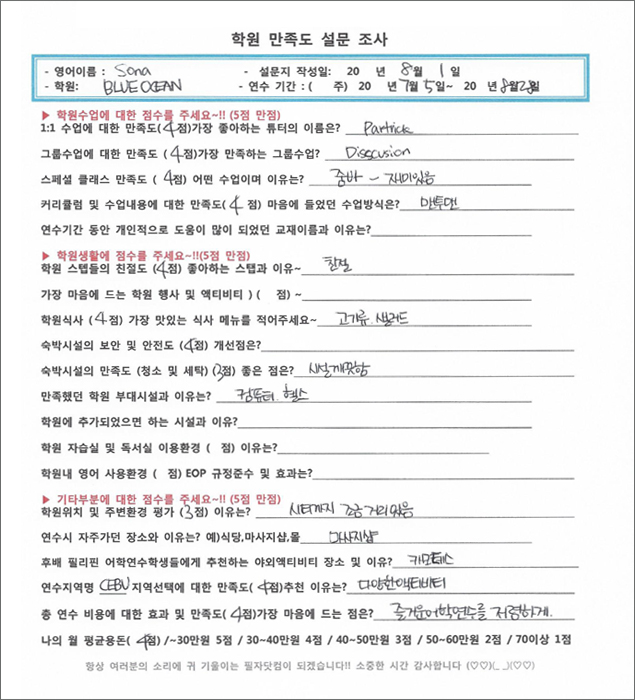 학원 만족도 설문 조사
- 영어이름 : Sona - 설문지 작성일: 20 년 8월 1일
- 학원: BLUE OCEAN - 연수 기간 : ( 주) 20 년 7월 5일~ 20 년 8월 28일
▶ 학원수업에 대한 점수를 주세요~!! (5점 만점)
1:1 수업에 대한 만족도(4점)가장 좋아하는 튜터의 이름은? Partrick
그룹수업에 대한 만족도 (4점)가장 만족하는 그룹수업? Disscusion
스페셜 클래스 만족도 ( 4점) 어떤 수업이며 이유는? 줌바 - 재미있음
커리큘럼 및 수업내용에 대한 만족도( 4 점) 마음에 들었던 수업방식은? 만투맨
연수기간 동안 개인적으로 도움이 많이 되었던 교재이름과 이유는?
▶ 학원생활에 점수를 주세요~!!(5점 만점)
학원 스텝들의 친절도 (4점) 좋아하는 스탭과 이유~ 친절
가장 마음에 드는 학원 행사 및 액티비티 ) ( 점) ~
학원식사 ( 4점) 가장 맛있는 식사 메뉴를 적어주세요~ 고기류. 샐러드
숙박시설의 보안 및 안전도 (4점) 개선점은?
숙박시설의 만족도 (청소 및 세탁) (3점) 좋은 점은? 시설깨끗함
만족했던 학원 부대시설과 이유는? 컴퓨터. 헬스
학원에 추가되었으면 하는 시설과 이유?
학원 자습실 및 독서실 이용환경 ( 점) 이유는?
학원내 영어 사용환경 ( 점) EOP 규정준수 및 효과는?
▶ 기타부분에 대한 점수를 주세요~!! (5점 만점)
학원위치 및 주변환경 평가 (3점) 이유는? 시티까지 조금 거리있음
연수시 자주가던 장소와 이유는? 예)식당,마사지샵,몰 마사지샵
후배 필리핀 어학연수학생들에게 추천하는 야외액티비티 장소 및 이유? 카모테스
연수지역명 CEBU 지역선택에 대한 만족도( 4점)추천 이유는? 다양한액티비티
총 연수 비용에 대한 효과 및 만족도( 4점)가장 마음에 드는 점은? 즐거운어학연수를 저렴하게.
나의 월 평균용돈( 4점) /~30만원 5점 / 30~40만원 4점 / 40~50만원 3점 / 50~60만원 2점 / 70이상 1점
항상 여러분의 소리에 귀 기울이는 필자닷컴이 되겠습니다!! 소중한 시간 감사합니다 (♡♡)(_ _)(♡♡)